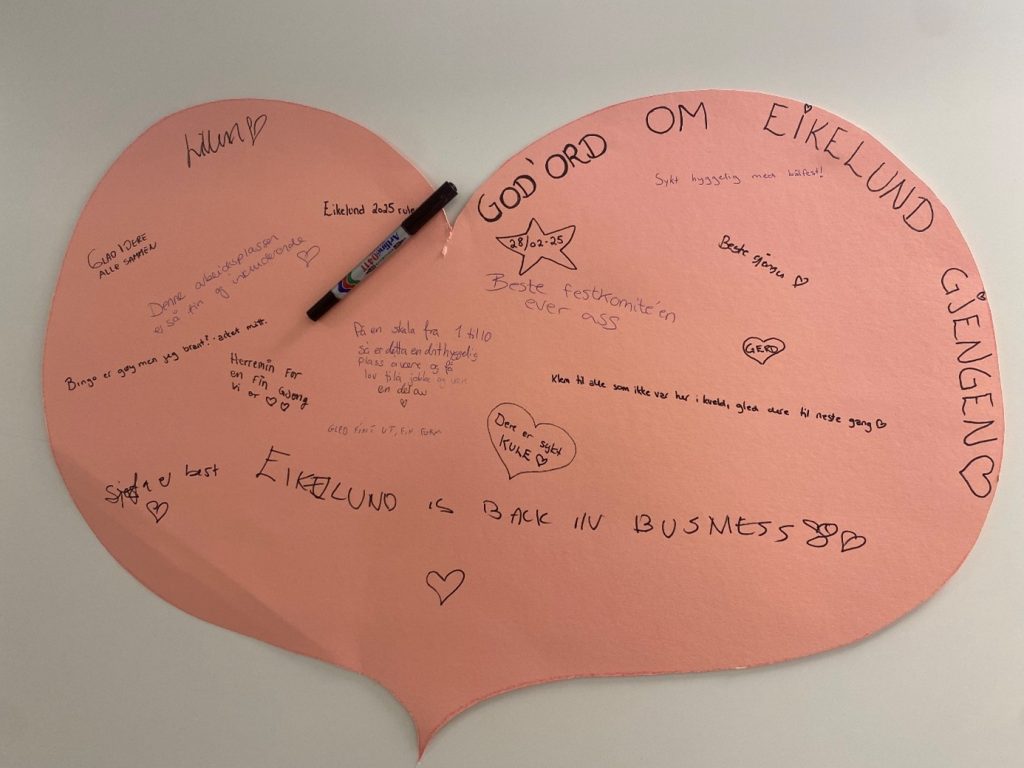 GOD'ORD OM EIKELUND GJENGEN ♡
♡
Sykt hyggelig med bålfest!
Eikelund 2025 rule
Artline
28/02-25
GLAD I DERE
ALLE SAMMEN
Denne arbeidsplassen
er så fin og inkluderende
♡
Beste gjengen ♡
Beste festkomité'en
ever ass
Bingo er gøy men jeg
På en skala fra 1 til 10
så er dette en drithyggelig
plass å være og få
lov til å jobbe og være
en del av
♡
Herremin For
en Fin Gjeng
Vi er ♡ ♡
GERD
Klem til alle som ikke var her i kveld, gled dere til neste gang ♡
Dere er sykt
KULE ♡
er best
♡
EIKELUND IS BACK IN BUSMESS ♡
♡